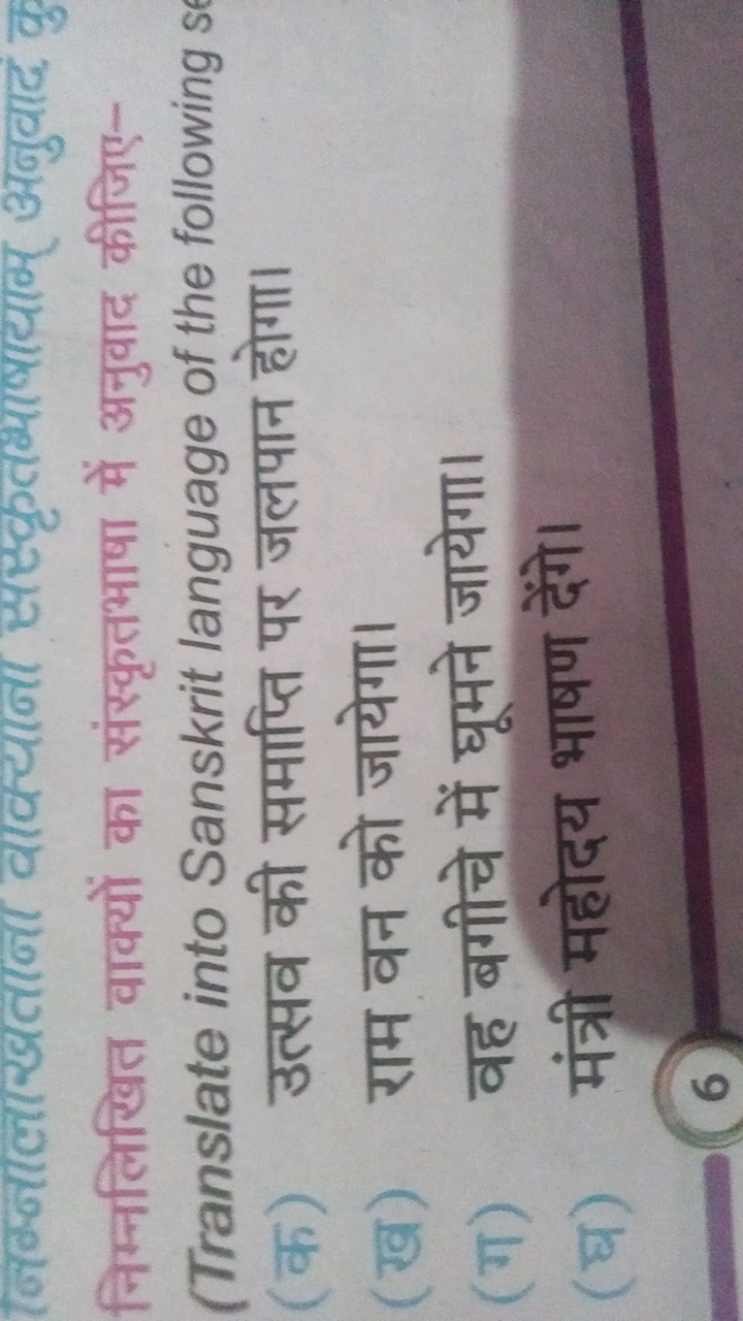 निम्नलिखितानां वाक्यानां संस्कृतभाषायाम् अनुवादं
निम्नलिखित वाक्यों का संस्कृतभाषा में अनुवाद कीजिए–
(Translate into Sanskrit language of the following
(क) उत्सव की समाप्ति पर जलपान होगा।
(ख) राम वन को जायेगा।
(ग) वह बगीचे में घूमने जायेगा।
(घ) मंत्री महोदय भाषण देंगे।
6